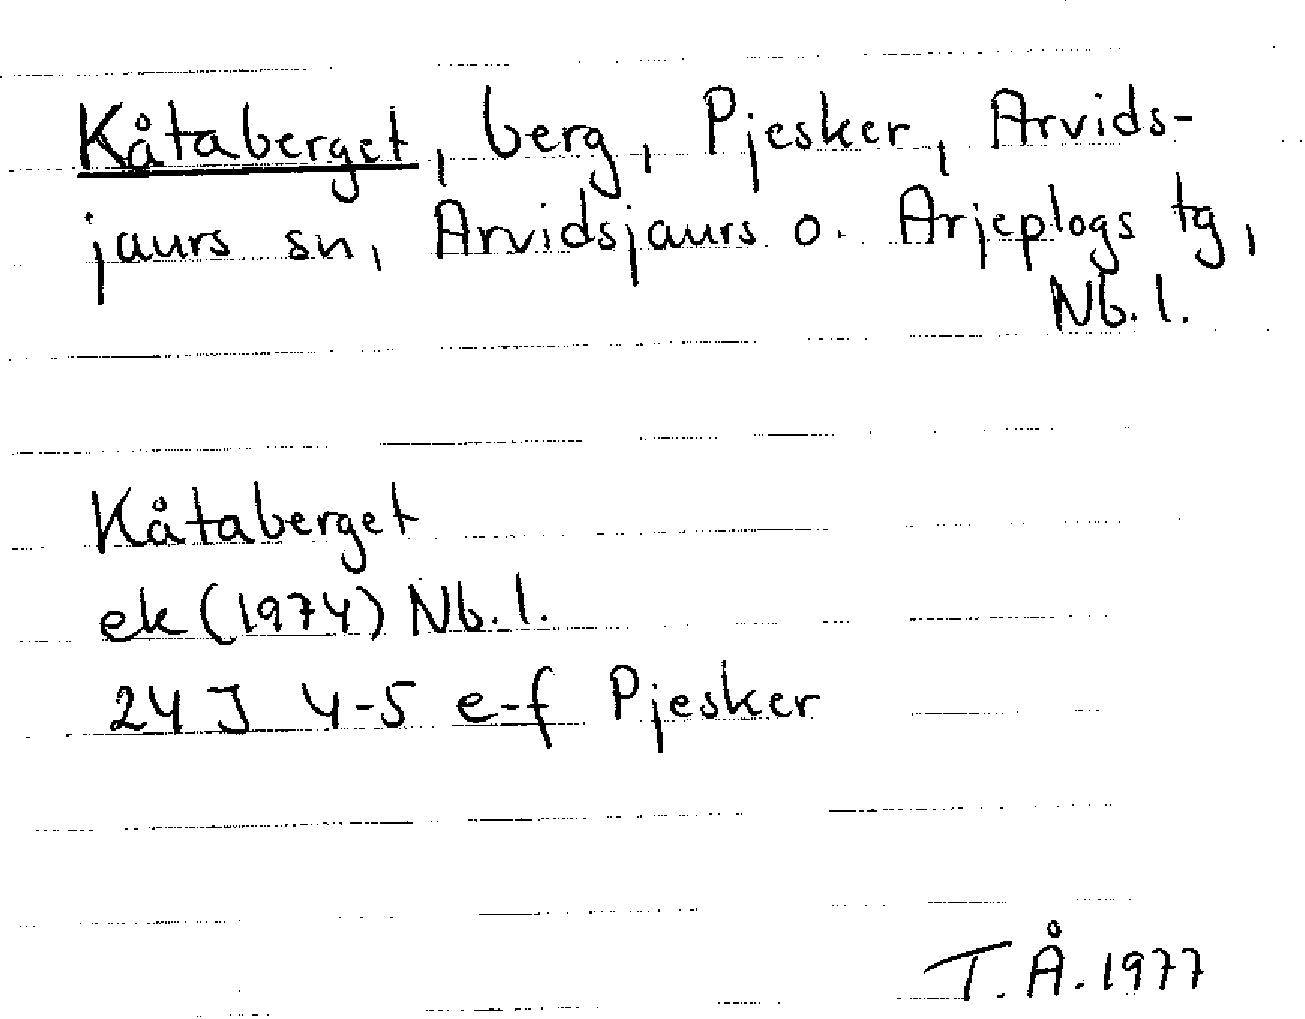 Kåtaberget, berg, Pjesker, Arvids-
jaurs sn, Arvidsjaurs o. Arjeplogs tg,
Nb. l.
Kåtaberget
ek (1974) Nb. l.
24 J 4-5 e-f Pjesker
T. Å. 1977